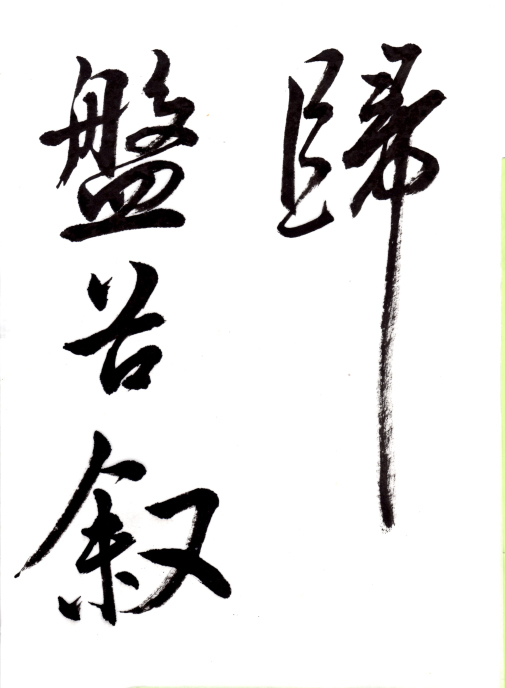 歸
盤谷叙